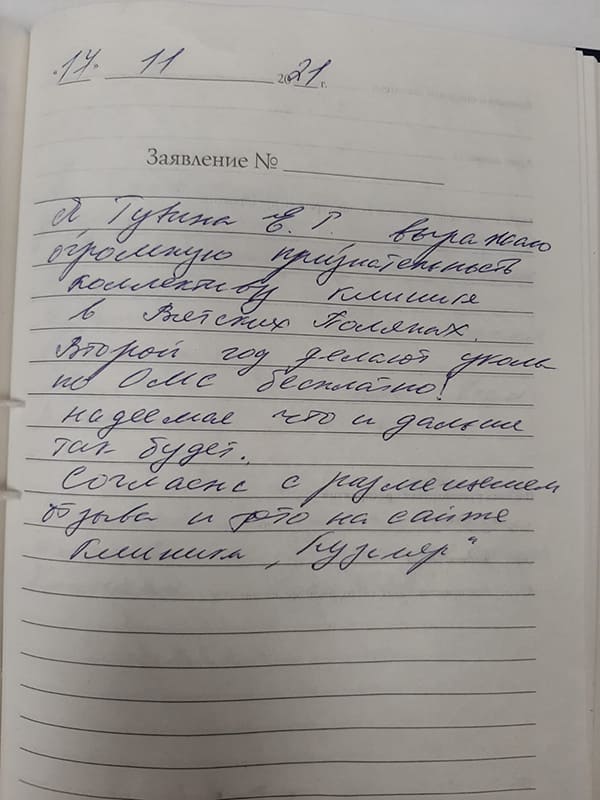 "17" 11 2021 г.
Заявление №
Я Тукина Е. Г. выражаю
огромную признательность
коллективу клиники
в Вятских Полянах.
Второй год делают уколы
по ОМС бесплатно!
надеемся что и дальше
так будет.
Согласна с размещением
отзыва и фото на сайте
Клиника „Кузляр"